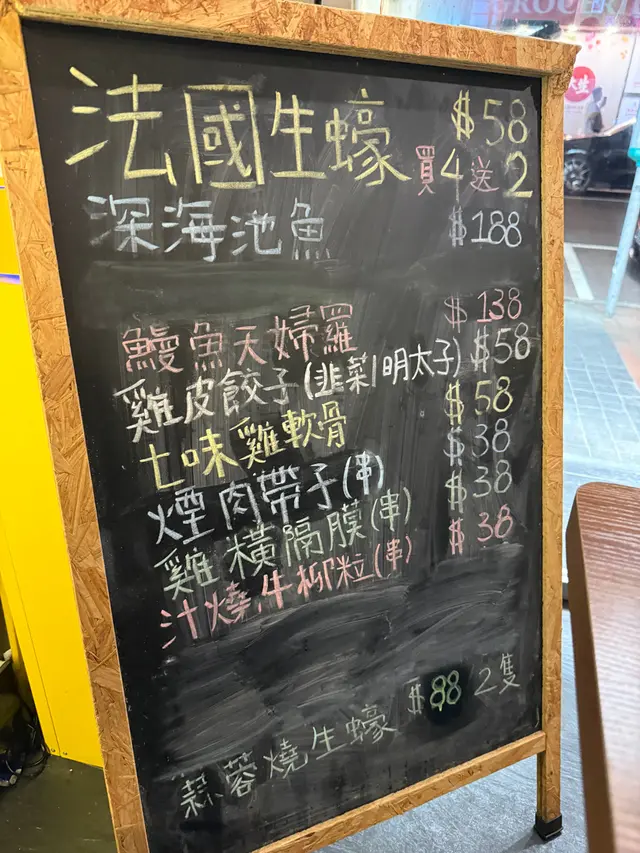 GROCERI
法國生蠔 $58
買4送2
深海池魚 $188
鰻魚天婦羅 $138
雞皮餃子(韭菜/明太子) $58
七味雞軟骨 $58
煙肉帶子(串) $38
雞橫隔膜(串) $38
汁燒牛柳粒(串) $38
蒜蓉燒生蠔 $88 2隻